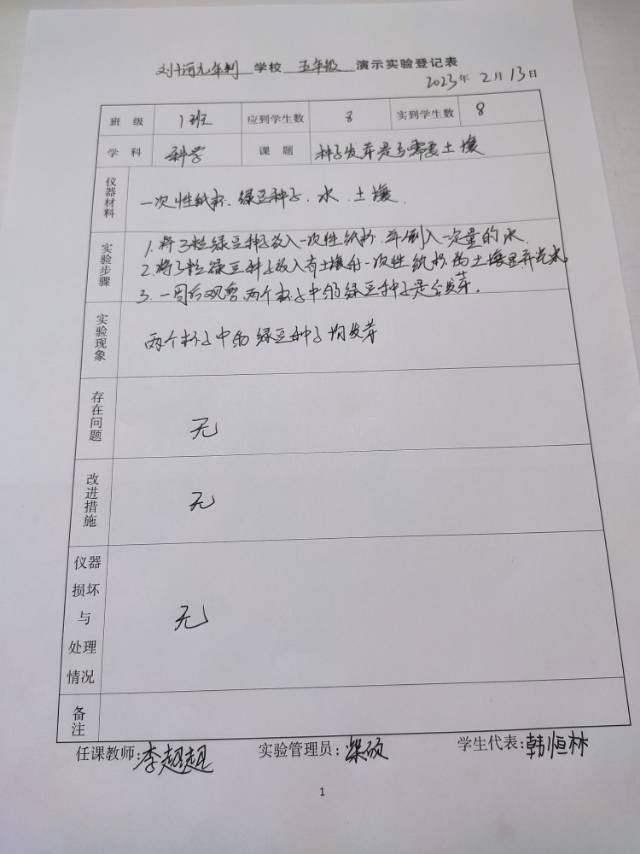 刘河九年制 学校 五年级 演示实验登记表
2023年2月13日
班 级 1班 应到学生数 8 实到学生数 8
学 科 科学 课 题 种子发芽是否需要土壤
仪器材料 一次性纸杯、绿豆种子、水、土壤
实验步骤 1.将3粒绿豆种子放入一次性纸杯,并倒入一定量的水.
2.将3粒绿豆种子放入有土壤的一次性纸杯的土壤里并浇水
3.一周后观察两个杯子中的绿豆种子是否发芽.
实验现象 两个杯子中的绿豆种子均发芽
存在问题 无
改进措施 无
仪器损坏与处理情况 无
备注
任课教师:李超超 实验管理员:梁硕 学生代表:韩恒林
1